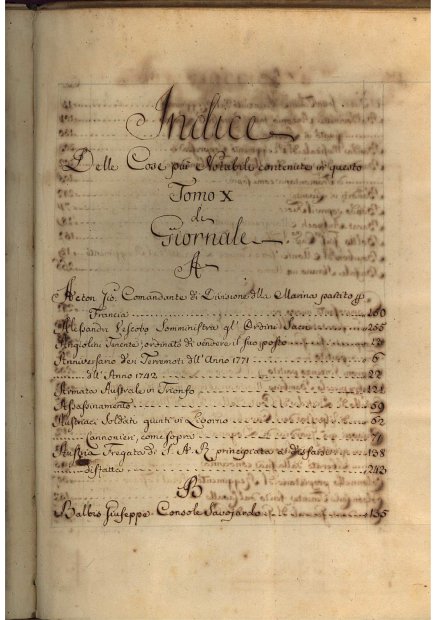 Indice
Delle Cose più Notabili contenute in questo
Tomo X
di
Giornale
A
Acton Gio. Comandante di Divisione dlla Marina partito
Francia 160
Alessandri Vescovo Somministra gl' Ordini Sacri 255
Angiolini Tenente, ordinato di vendere il suo posto 13
Anniversario de' Terremoti dll' Anno 1771 6
dll' Anno 1742 22
Armata Australe in Trionfo 121
Assassinamento 59
Austriaci Soldati giunti in Livorno 62
Cannonieri, come sopra 71
Austria Fregata di S. A. R. principiata a disfarsi 138
disfatta 243
B
Balbis Giuseppe Console Savojardo 135